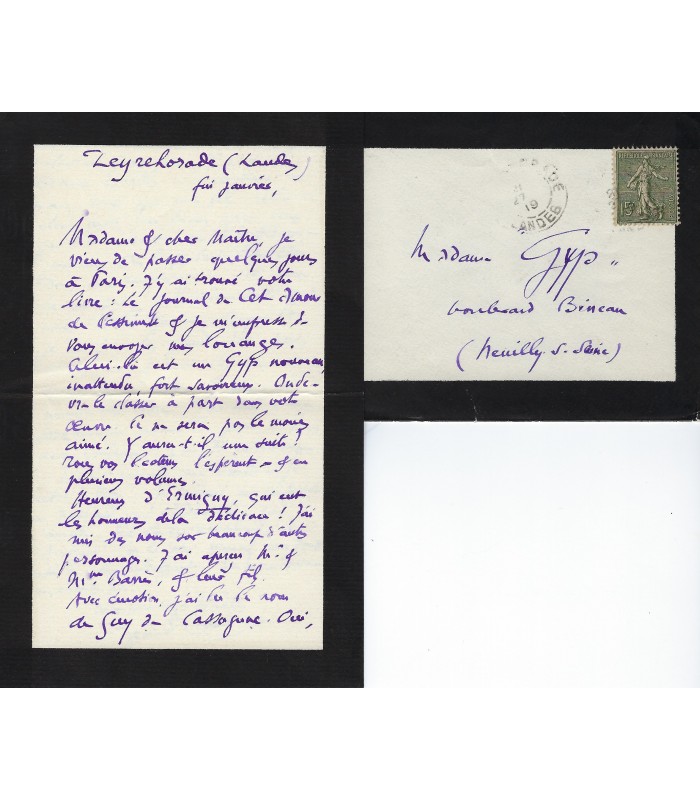 Peyrehorade (Landes)
fin janvier,
Madame & cher Maître, je
viens de passer quelques jours
à Paris. J'y ai trouvé votre
livre : Le Journal de cet Amour
de & je m'empresse de
vous envoyer mes louanges.
Celui-là est un Gyp nouveau,
inattendu, fort savoureux. On de-
vra le classer à part dans votre
œuvre. Ce ne sera pas le moins
aimé. Y aura-t-il une suite ?
Tous vos lecteurs l'espèrent - & en
plusieurs volumes.
Heureux d'Ermigny, qui eut
les honneurs de la dédicace ! J'ai
mis des noms sur beaucoup d'autres
personnages. J'ai aperçu Mr. &
Mme Barrès, & leur fils.
Avec émotion, j'ai lu le nom
de Guy de Cassagnac. Oui,
27
19
LANDES
REPUBLIQUE FRANCAISE
15c
Madame Gyp
boulevard Bineau
(Neuilly-s-Seine)